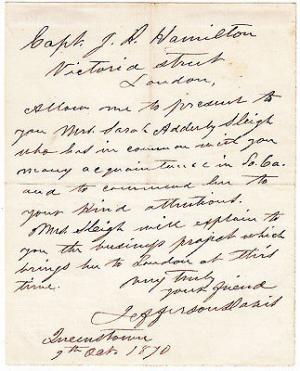 Capt. J. R. Hamilton
Victoria Street
London,
Allow me to present to
you Mrs. Sarah Adderly Sleigh
who has in common with you
many acquaintance in So. Ca.
and to commend her to
your kind attentions.
Mrs. Sleigh will explain to
you the business project which
brings her to London at this
time.
very truly
your friend
Jefferson Davis
Queenstown
9th Oct. 1870